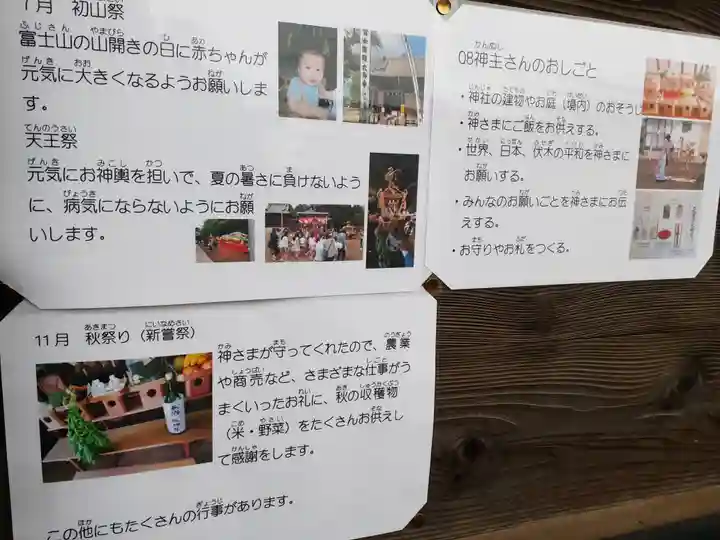 7月 初山祭
富士山の山開きの日に赤ちゃんが
元気に大きくなるようお願いしま
す。
天王祭
元気にお神輿を担いで、夏の暑さに負けないよう
に、病気にならないようにお願
いします。
08神主さんのおしごと
・神社の建物やお庭（境内）のおそうじ
・神さまにご飯をお供えする。
・世界、日本、伏木の平和を神さまに
お願いする。
・みんなのお願いごとを神さまにお伝
えする。
・お守りやお札をつくる。
11月 秋祭り（新嘗祭）
神さまが守ってくれたので、農業
や商売など、さまざまな仕事がう
まくいったお礼に、秋の収穫物
（米・野菜）をたくさんお供えし
て感謝をします。
この他にもたくさんの行事があります。